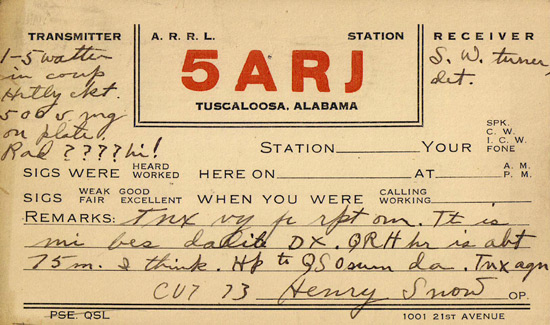 TRANSMITTER A. R. R. L. STATION RECEIVER
1-5 watter
in coup
Hrtly ckt.
500 v. mg
on plate.
Rad ????hi!
5ARJ
TUSCALOOSA, ALABAMA
S. W. tuner,
det.
STATION YOUR SPK. C. W. I. C. W. FONE
SIGS WERE HEARD WORKED HERE ON AT A. M. P. M.
SIGS WEAK FAIR GOOD EXCELLENT WHEN YOU WERE CALLING WORKING
REMARKS: Tnx vy fr rpt om. Tt is
mi bes dalite DX. QRH hr is abt
75m. I think. Hp to QSO sum da. Tnx agn
CU7 73 Henry Snow OP.
PSE. QSL 1001 21ST AVENUE